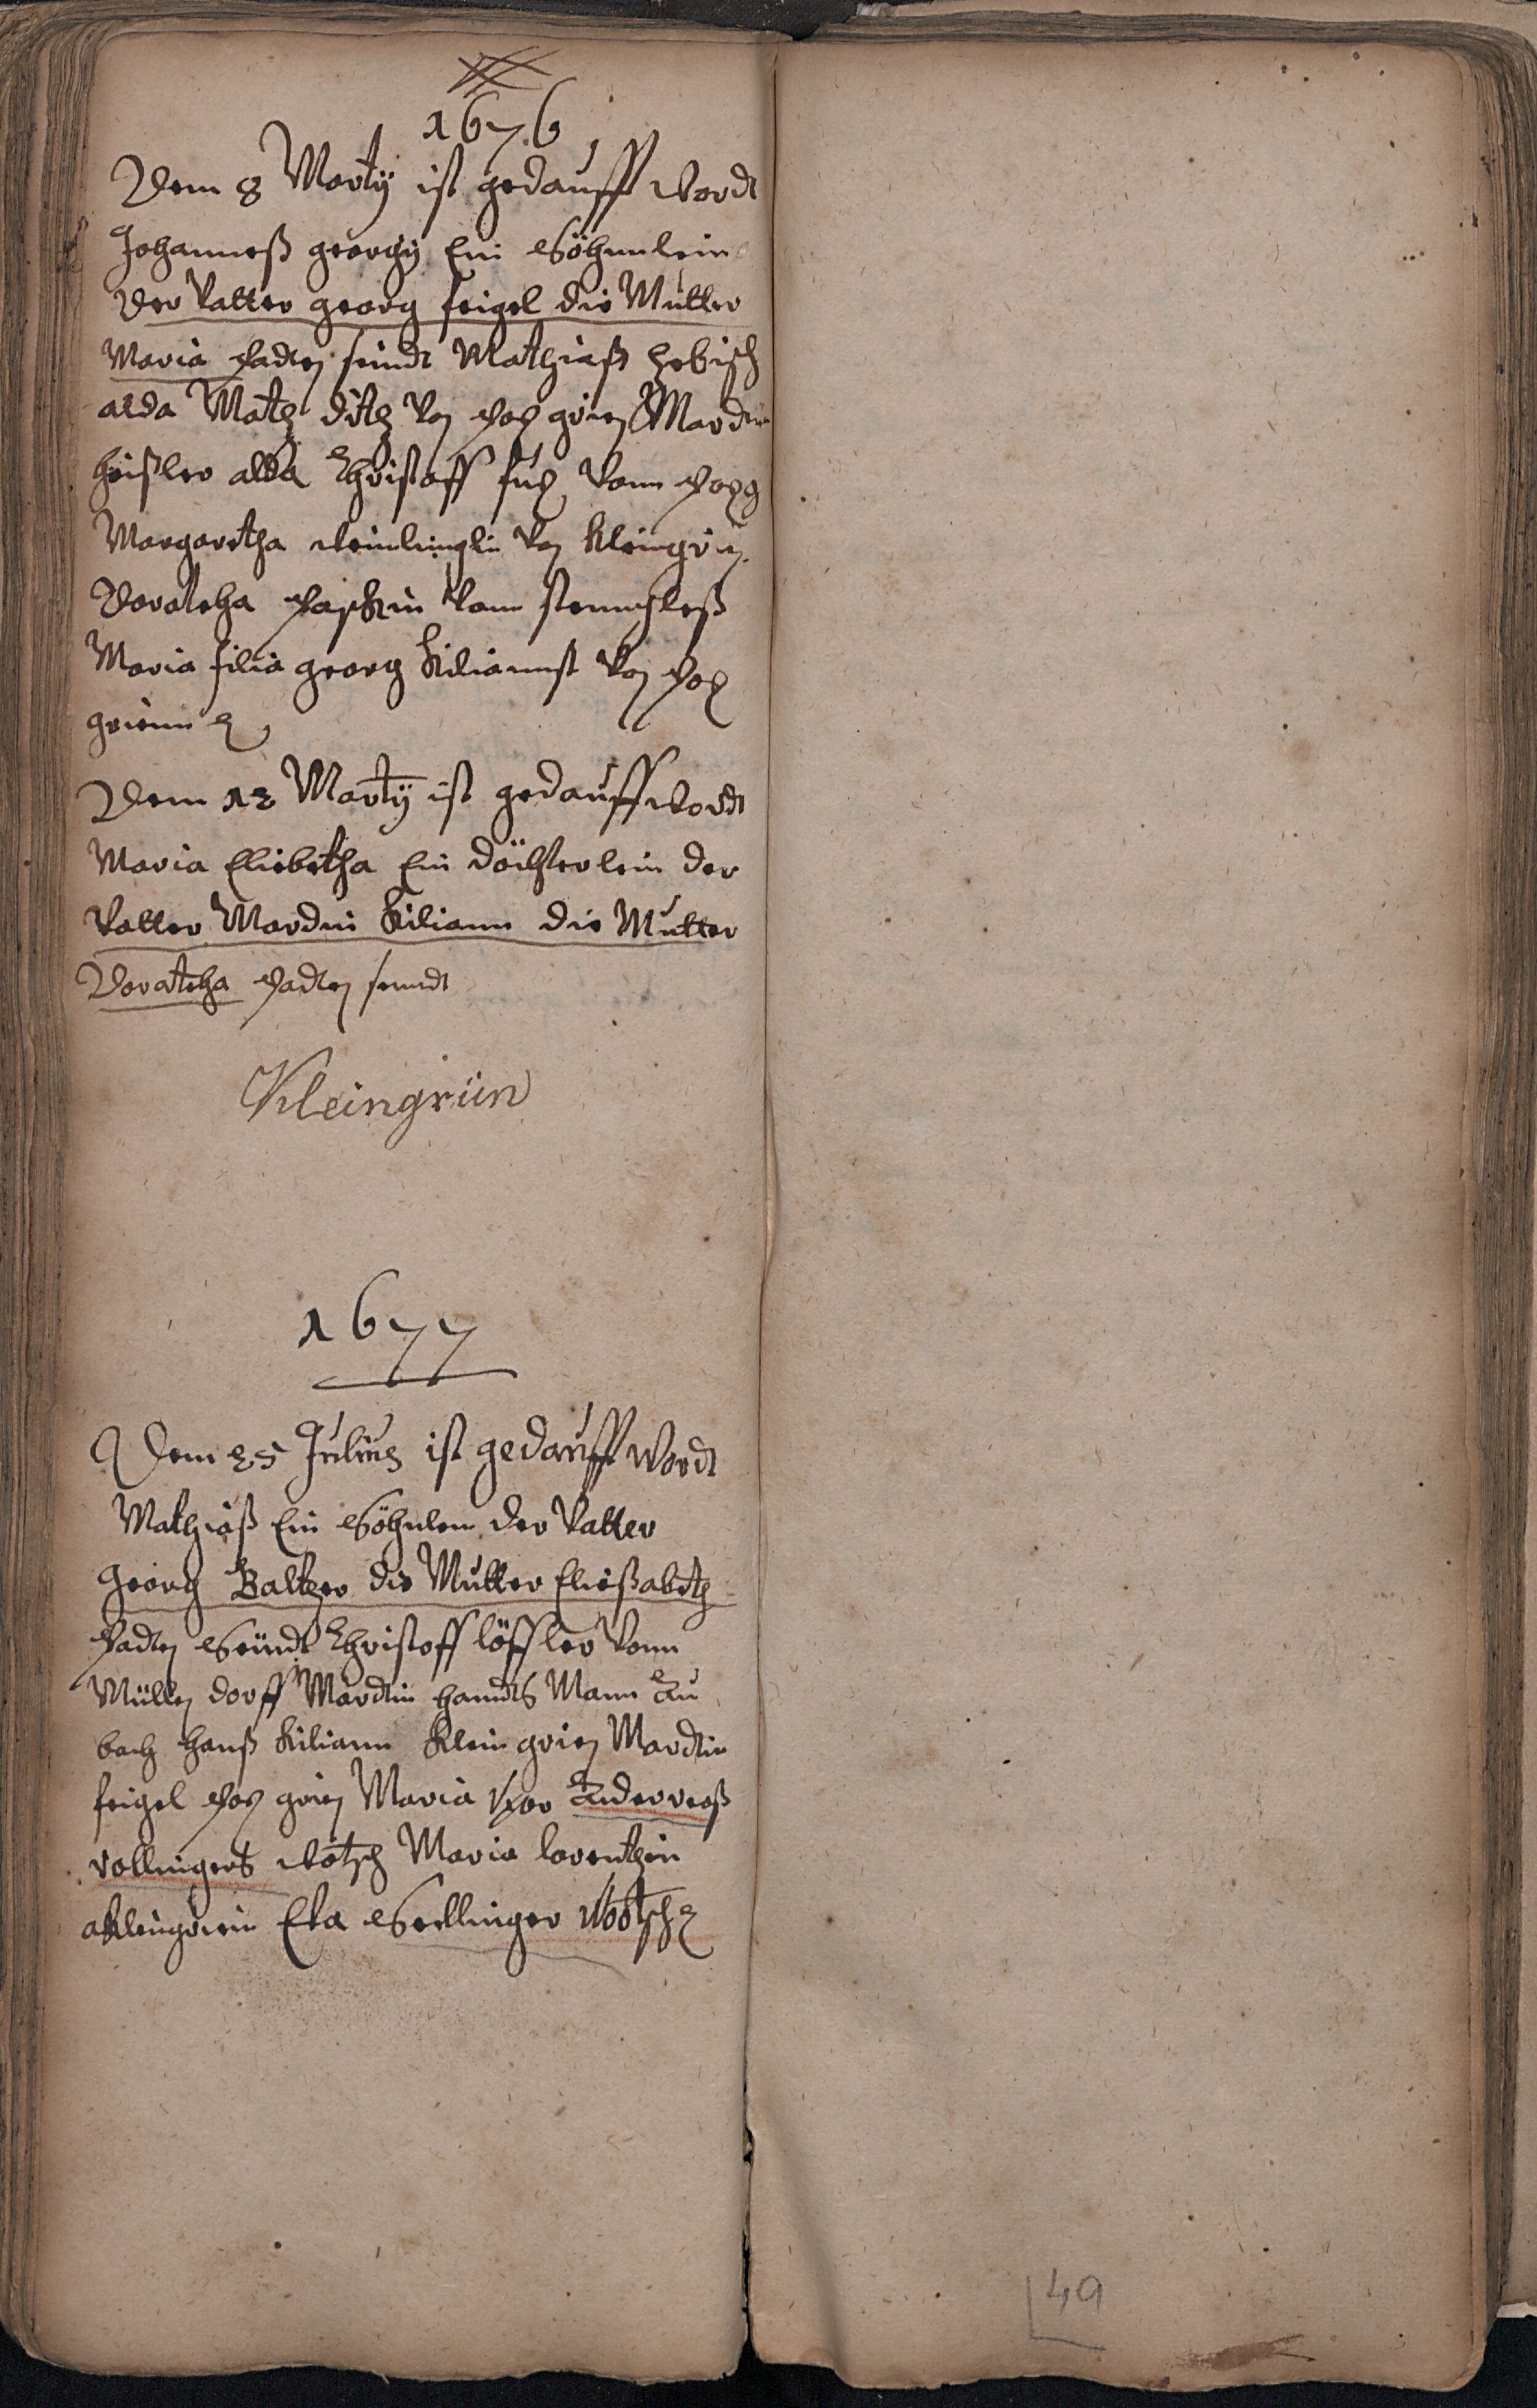 1676
Dem 8 Marty ist gedaufft wordt
Johanneß georgy Ein Söhnnlein
der Vatter georg feigel die Mutter
Maria Padten seindt Mathiaß
alda Math Von grien Mardin
alda Christoff fuchs Vom
Margaretha Von Kleingrien
Dorateha Vom
Maria filia georg Kilianns Von
grienn
Dem 12 Marty ist gedaufft wordt
Maria Eliebetha Ein döchterlein der
Vatter Mardin Kiliann die Mutter
Doratcha Padten seindt
Kleingrün
1677
Dem 25 Julius ist gedaufft wordt
Mathiaß Ein Söhnlen der Vatter
georg Baltzer die Mutter Eließabeth
Padten Seindt Christoff löffler Vom
Müllen dorff Mardin Mann Au
bach hanß Kiliann Klein grien Mardin
feigel grien Maria Vxor Anderreaß
vollingers wötsch Maria lorentzin
aKleingrien Eva Sellinger Wötsch
49